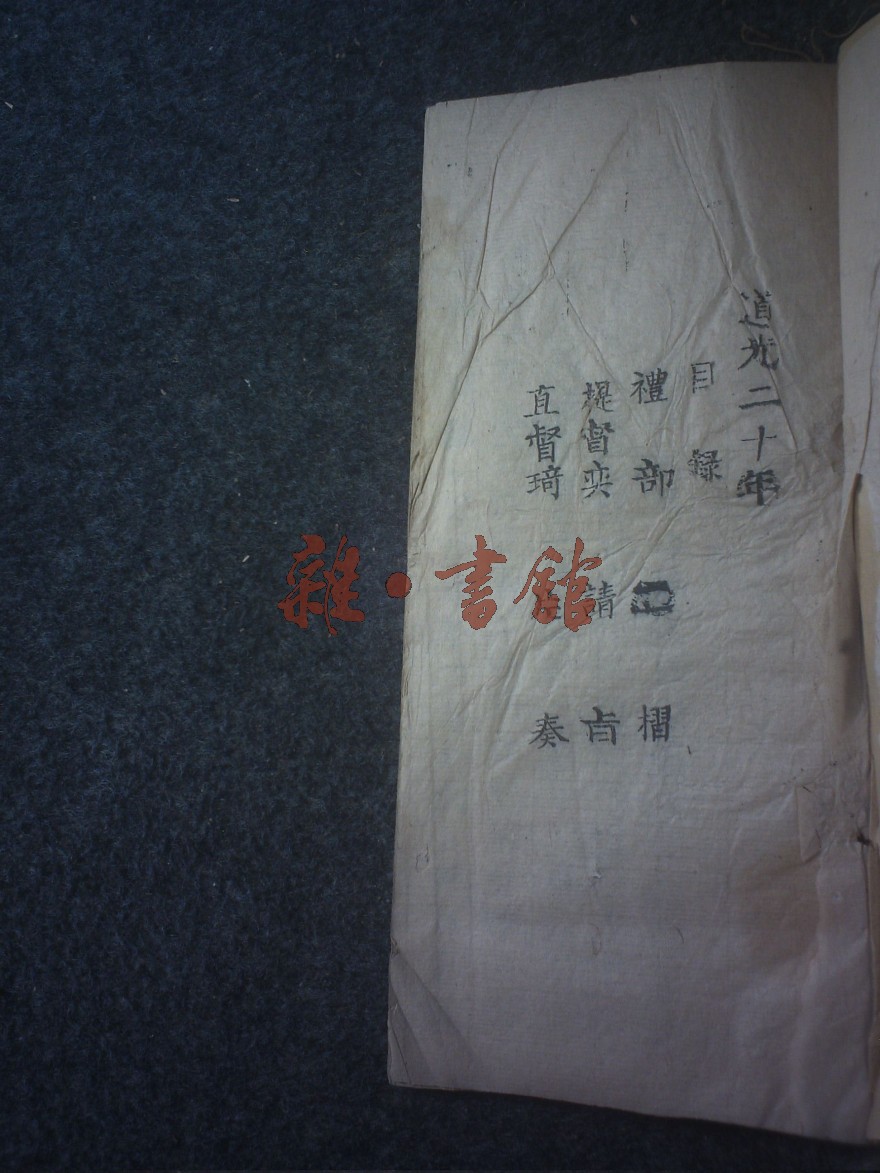 道光二十年
目錄
禮部 摺
提督奕 請旨
直督琦 奏
雜·書館